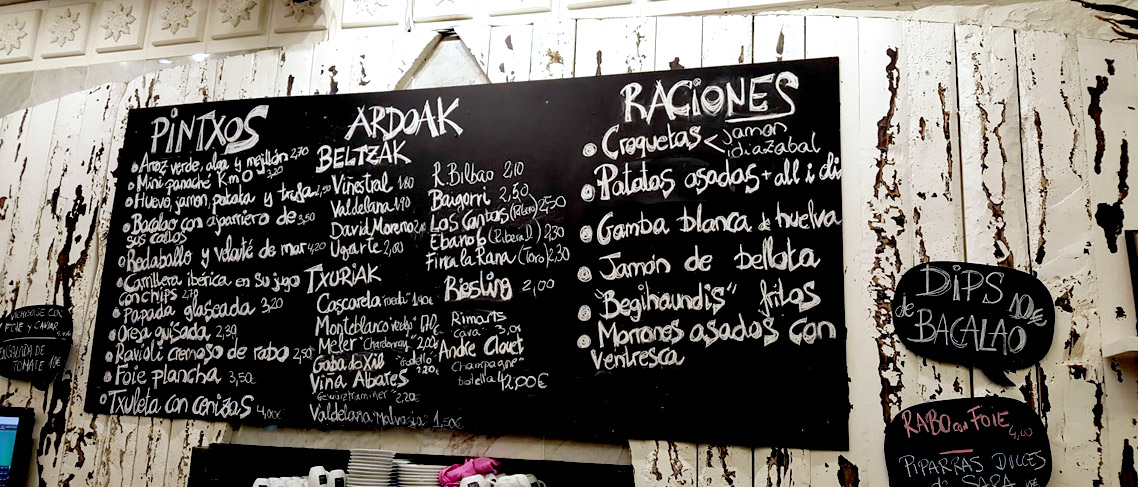 PINTXOS
Arroz verde, alga y mejillón 2,70
Mini panaché Km 0 3,20
Huevo, jamón, patata y trufa
Bacalao con ajoarriero de 3,50
sus callos
Rodaballo y velouté de mar 4,20
Carrillera ibérica en su jugo
con chips 2,70
Papada glaseada 3,20
Oreja guisada 2,30
Ravioli cremoso de rabo 2,50
Foie plancha 3,50€
Txuleta con cenizas 4,00€
ARDOAK
BELTZAK
Viñestral 1,80
Valdelana 1,90
David Moreno
Ugarte 2,00
TXURIAK
Cascarda "rueda" 1,40€
Monteblanco "verdejo"
Meler "Chardonnay" 2,00€
Goba do Xil "Godello" 2,20€
Viña Albares
Gewürztraminer 2,20€
Valdelana "Malvasia" 1,50€
R. Bilbao 2,10
Baigorri 2,50
Los Cantos 2,50
Ebano 6 (Ribera D.) 2,30
Finca la Rana (Toro) 2,30
Riesling 2,00
Rimarts
cava 3,0€
Andre Clouet
Champagne
botella 42,00€
RACIONES
Croquetas < jamon
idiazabal
Patatas asadas + all i oli
Gamba blanca de huelva
Jamón de bellota
"Begihaundis" fritos
Morrones asados con
ventresca
FOIE Y CAVIAR
ENSALADA DE
TOMATE
DIPS
de BACALAO 10€
RABO con FOIE 4,00
PIPARRAS DULCES
de SARA